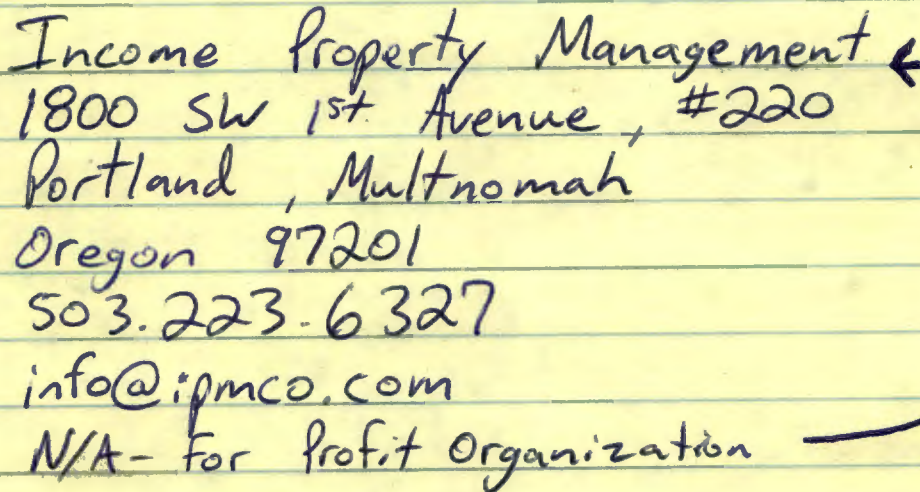 Income Property Management
1800 SW 1st Avenue, #220
Portland, Multnomah
Oregon 97201
503.223.6327
info@ipmco.com
N/A - For Profit Organization